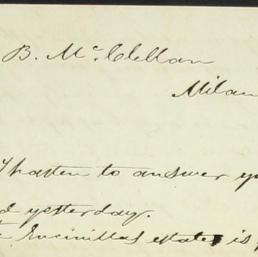 B. McClellan
Milan
I hasten to answer
yesterday.
Encinillas estate is